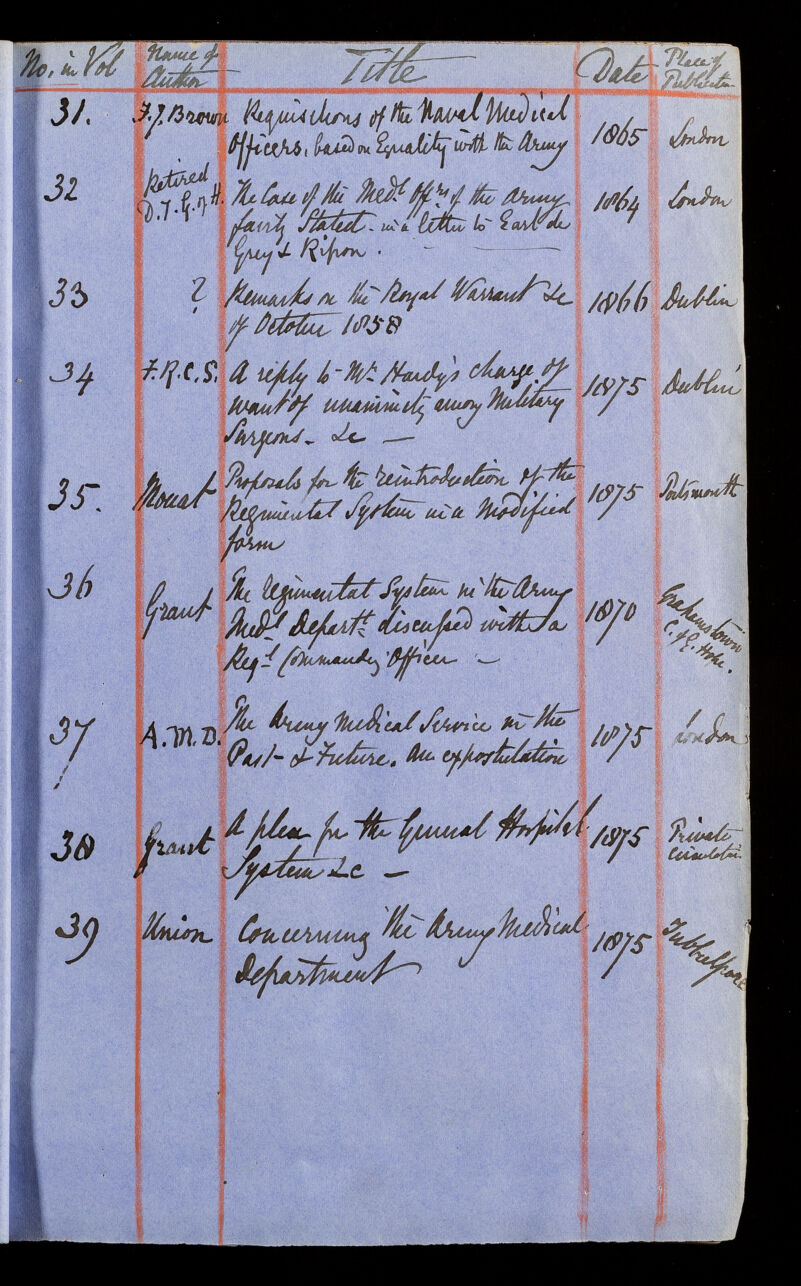 No. in Vol | Name of Author | Title | Date | Place of Publication
31. | F. J. Brown | Requisitions of the Naval Medical
Officers, based on Equality with the Army | 1865 | London
32 | Retired D.I.G. of H. | The Case of the Medl Offrs of the Army
fairly Stated - in a letter to Earl de
Grey & Ripon. | 1864 | London
33 | ? | Remarks on the Royal Warrant &c
of October 1858 | 1866 | Dublin
34 | F.R.C.S. | A reply to Mr Hardy's charge of
want of unanimity among Military
Surgeons - &c — | 1875 | Dublin
35. | Mouat | Proposals for the reintroduction of the
Regimental System in a Modified
form | 1875 | Portsmouth
36 | Grant | The Regimental System in the Army
Medl Departt discussed with a
Regl Commanding Officer - | 1870 | Grahamstown
C. of G. Hope.
37 | A.M.D. | The Army Medical Service in the
Past - & Future. An expostulation | 1875 | London
38 | Grant | A plea for the General Hospital
System &c — | 1875 | Private
Circulation
39 | Union | Concerning the Army Medical
Department | 1875 | Jubbulpore